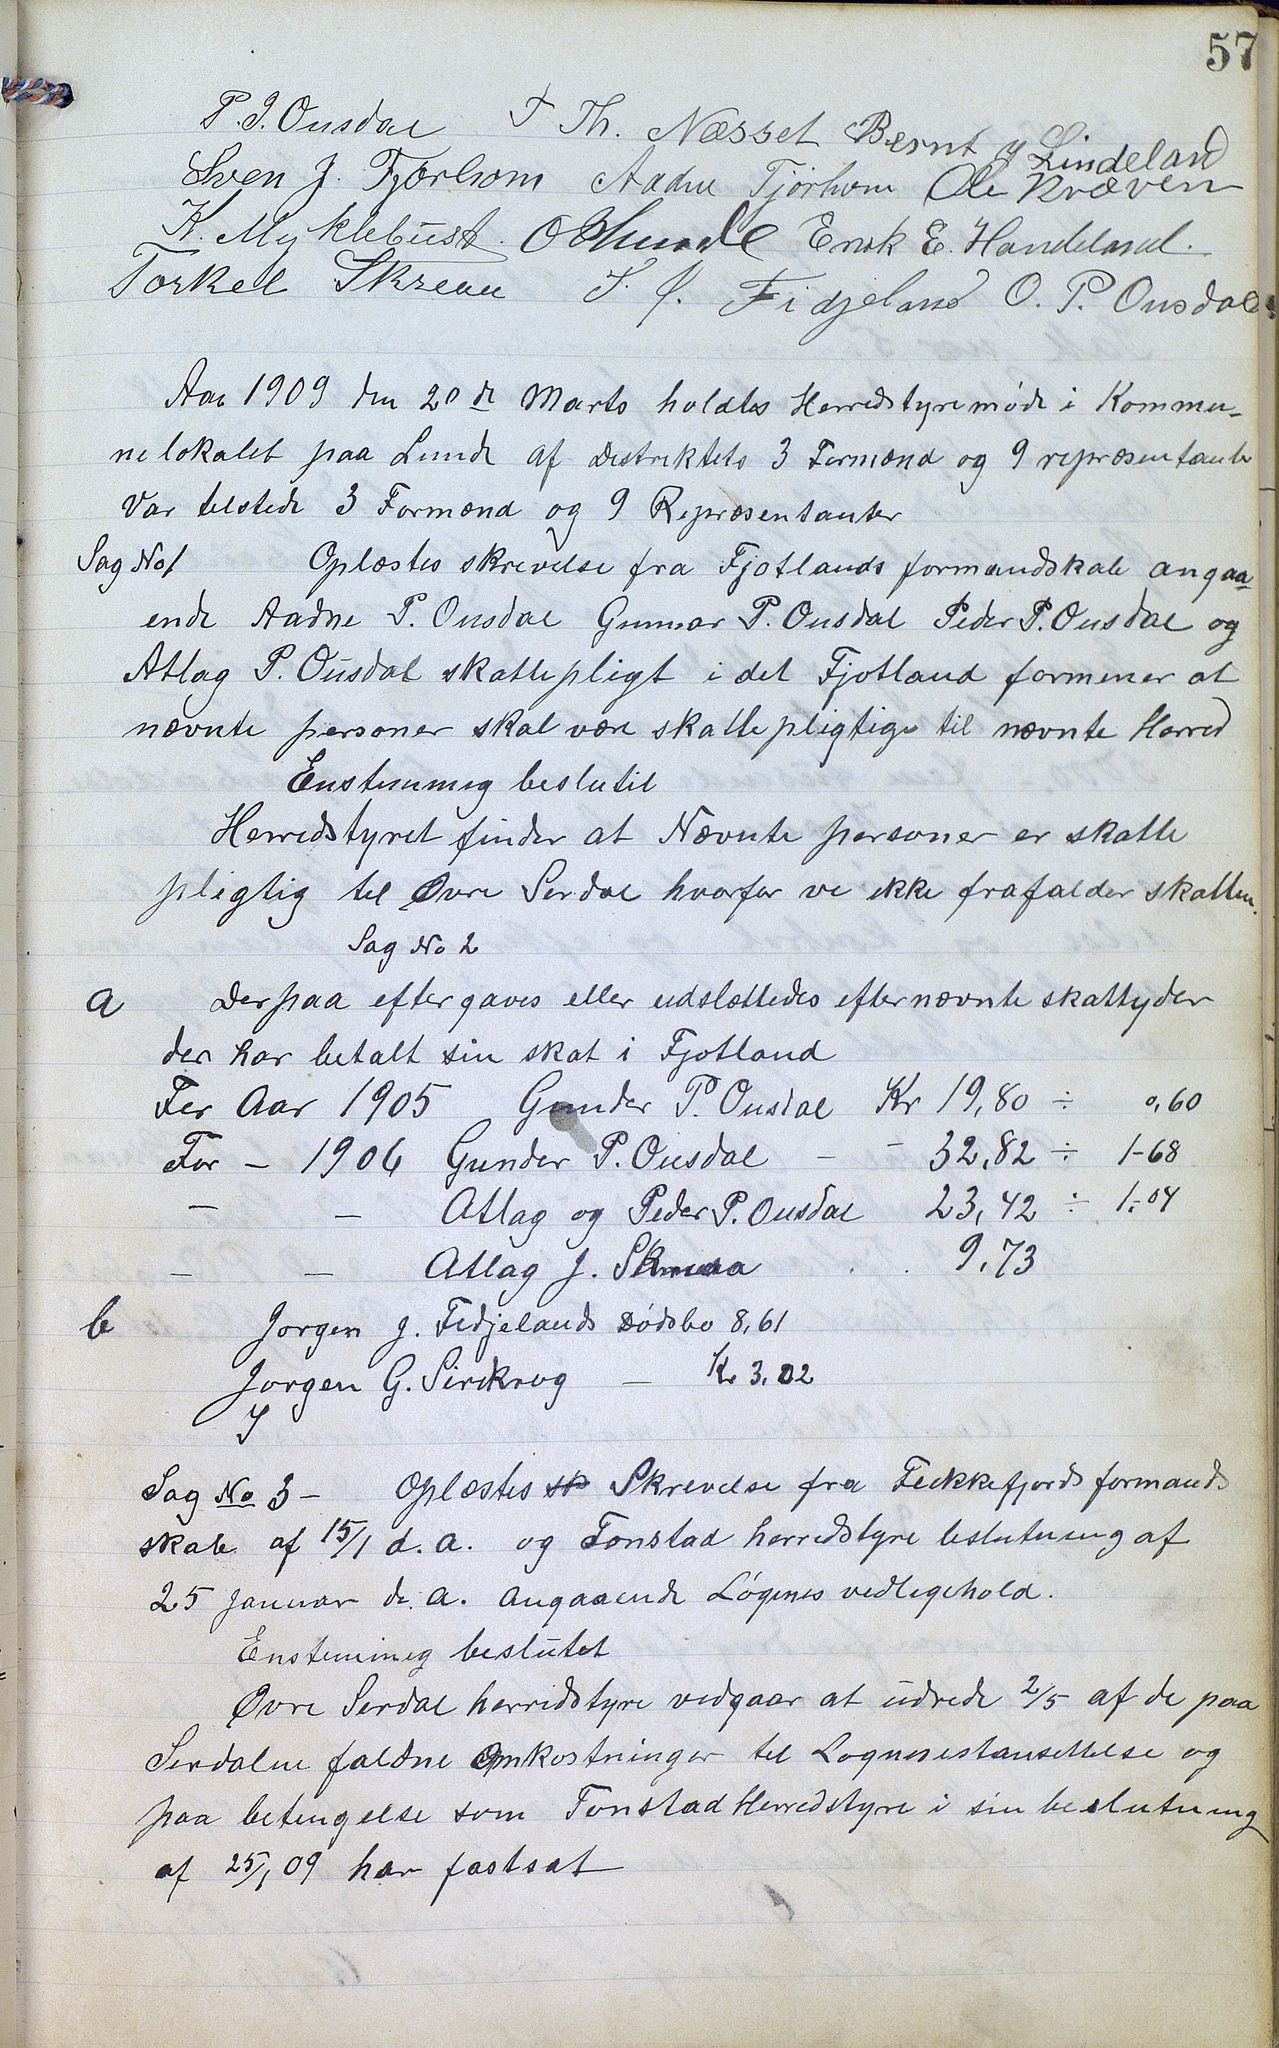 57
P. J. Ousdal T Th. Næsset Bernt J Lindeland
Sven J. Tjørhom Aadne Tjørhom Ole Kvæven
K. Myklebust. O Hunde Enok E. Handeland.
Torkel Skreaa T. J. Fidjeland O. P. Ousdal
Aar 1909 den 20de Marts holdtes Herredstyremøde i Kommu-
nelokalet paa Lunde af Destriktets 3 Formænd og 9 repræsentante
Var telstede 3 Formænd og 9 Repræsentanter
Sag No 1 Oplæstes skrevelse fra Fjotlands formandskab angaa
ende Aadne P. Ousdal Gunnar P. Ousdal Peder P. Ousdal og
Atlag P. Ousdal skattepligt i det Fjotland formener at
nævnte personer skal være skattepligtige til nævnte Herred
Enstemmig beslutit
Herredstyret finder at Nævnte personer er skatte
pligtig til Øvre Serdal hvorfor vi ikke frafalder skatten.
Sag No 2
a Derpaa eftergaves eller udslættedes efternævnte skattyder
der har betalt sin skat i Fjotland
For Aar 1905 Gunder P. Ousdal Kr 19,80 ÷ 0,60
For - 1906 Gunder P. Ousdal - 32,82 ÷ 1-68
- - Atlag og Peder P. Ousdal 23,42 ÷ 1.04
- - Atlag J. Skreaa . . 9,73
b Jorgen J. Fidjelands Dødsbo 8,61
Jorgen G. Sirekrog - Kr 3,02
J
Sag No 3 - Oplæstes sk Skrevelse fra Fekkefjords formands
skab af 15/1 d. a. og Tonstad herredstyre beslutning af
25 Januar d. a. angaaende Løgenes vedligehold.
Enstemmig beslutet
Øvre Serdal herredstyre vedgaar at udrede 2/5 af de paa
Serdalen faldne Omkostninger til Lognenestansettelse og
paa betengelse som Tonstad Herredstyre i sin beslutning
af 25/1 09 har fastsat